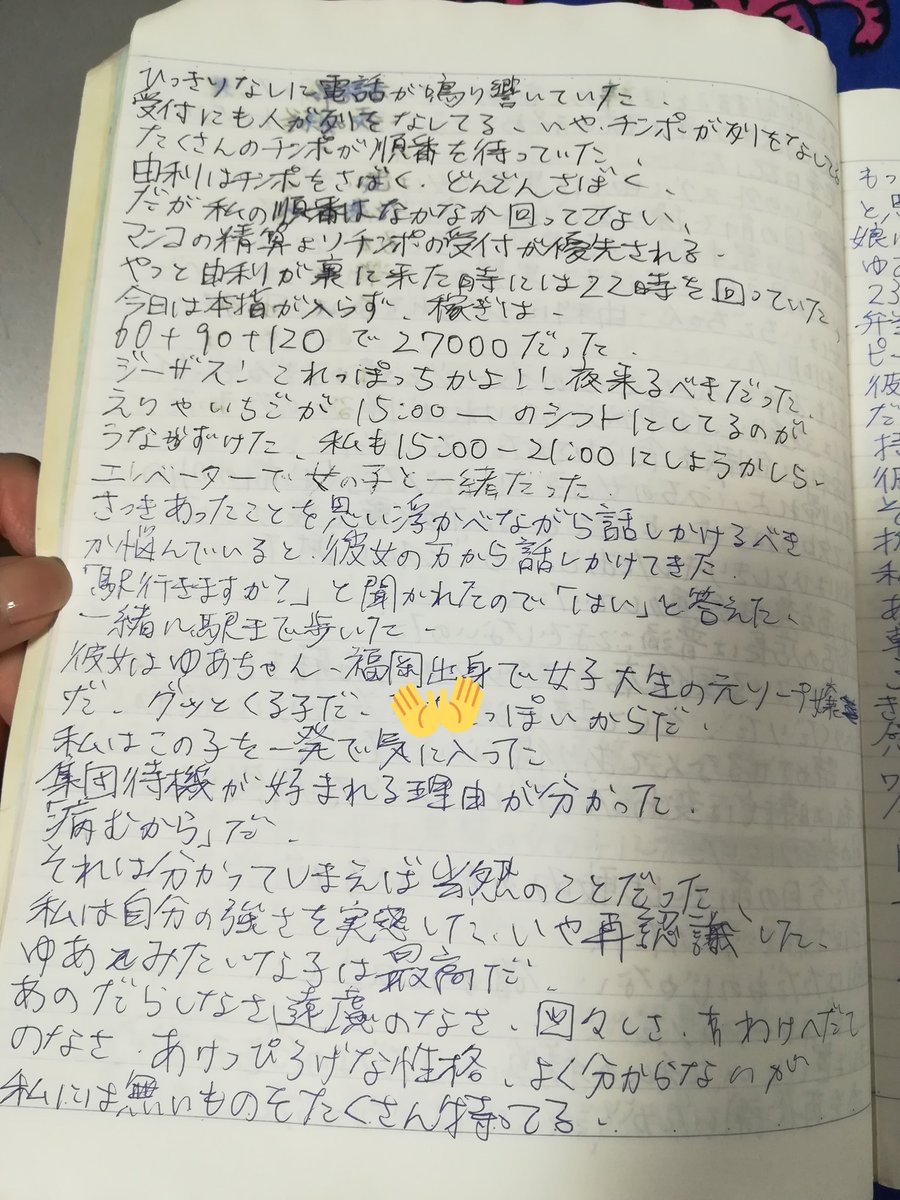 ひっきりなしに電話が鳴り響いていた、
受付にも人が列をなしてる、いや、チンポが列をなしてる
たくさんのチンポが順番を待っていた、
由利はチンポをさばく、どんどんさばく、
だが私の順番はなかなか回ってこない、
マンコの精算よりチンポの受付が優先される、
やっと由利が裏に来た時には22時を回っていた、
今日は本指が入らず、稼ぎは、
60+90+120で27000だった、
ジーザス!これっぽっちかよ!!夜来るべきだった、
えりやいちごが15:00ーのシフトにしてるのが
うなずけた、私も15:00-21:00にしようかしら、
エレベーターで女の子と一緒だった、
さっきあったことを思い浮かべながら話しかけるべき
か悩んでいると、彼女の方から話しかけてきた、
「駅行きますか?」と聞かれたので「はい」と答えた、
一緒に駅まで歩いた、
彼女はゆあちゃん、福岡出身で女子大生の元ソープ嬢
だ、グッとくる子だ、 っぽいからだ、
私はこの子を一発で気に入った
集団待機が好まれる理由が分かった、
「病むから」だ、
それは分かってしまえば当然のことだった、
私は自分の強さを実感した、いや再認識した、
ゆあみたいな子は最高だ、
あのだらしなさ、遠慮のなさ、図々しさ、わけへだて
のなさ、あけっぴろげな性格、よく分からないが
私には無いものをたくさん持ってる、
もっ
と思
娘に
ゆ
23
弁当
ピー
彼
だ
持
彼
と
私
あ
き